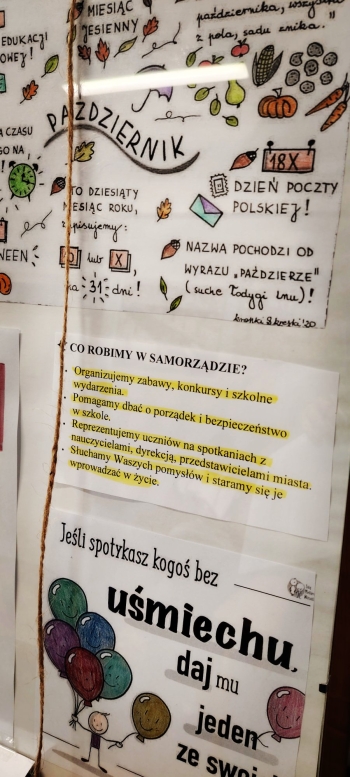 MIESIĄC
JESIENNY
października,
z pola, sadu znika."
EDUKACJI
PAŹDZIERNIK
TO DZIESIĄTY
MIESIĄC ROKU,
lub X,
31 dni!
18X
DZIEŃ POCZTY
POLSKIEJ!
NAZWA POCHODZI OD
WYRAZU „PAŹDZIERZE"
(suche łodygi lnu)!
kropki & kreski '20
CO ROBIMY W SAMORZĄDZIE?
• Organizujemy zabawy, konkursy i szkolne
wydarzenia.
• Pomagamy dbać o porządek i bezpieczeństwo
w szkole.
• Reprezentujemy uczniów na spotkaniach z
nauczycielami, dyrekcją, przedstawicielami miasta.
• Słuchamy Waszych pomysłów i staramy się je
wprowadzać w życie.
Jeśli spotykasz kogoś bez
uśmiechu,
daj mu
jeden
ze swoi